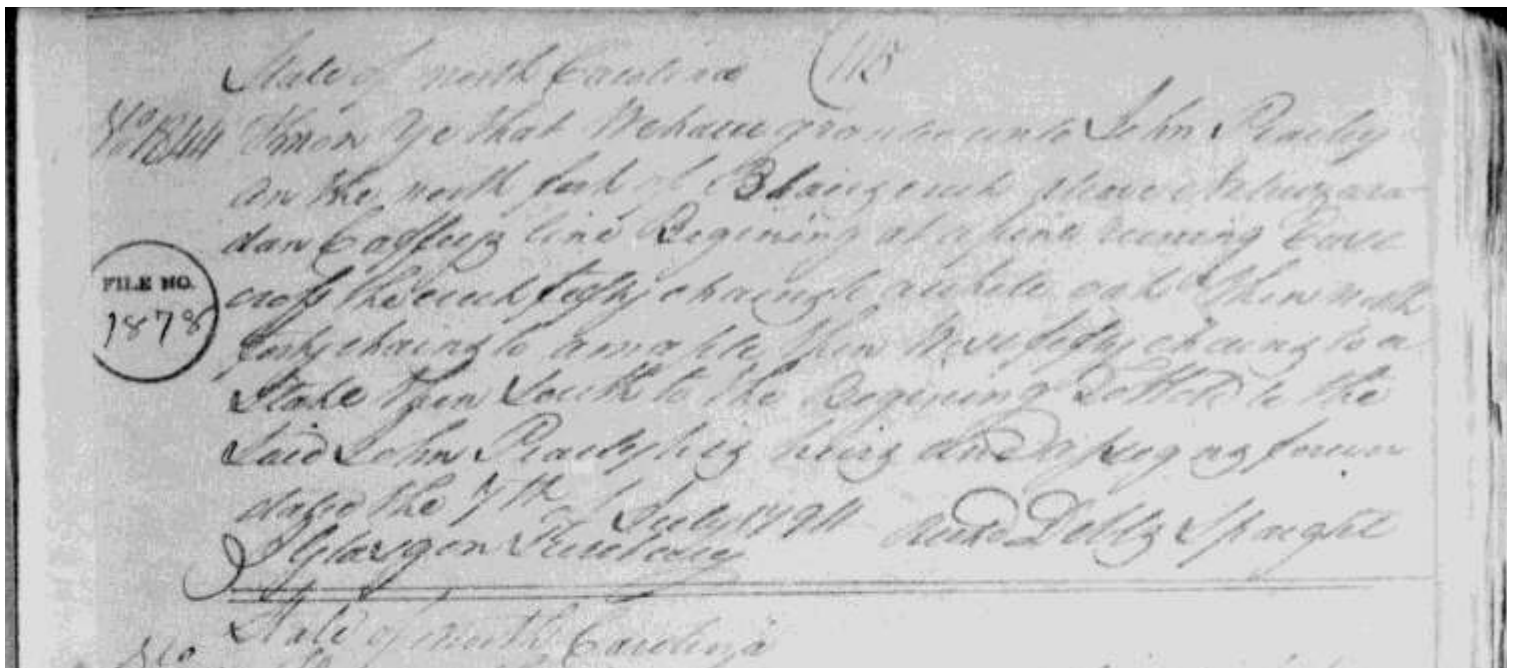 State of north Carolina (115
No 1844 Know Ye that We have granted unto John
on the north fork of creek
dan line Begining at a pine runing East
cross the creek fifty chains to a white oak then north
forty chains to a maple then West fifty chains to a
Stake then South to the Begining to the
Said John his heirs and asseegns forever
dated the 7th of July 1794 Richd Dobbs Spaight
J Glasgow Secretary
FILE NO.
1878
State of north Carolina
No